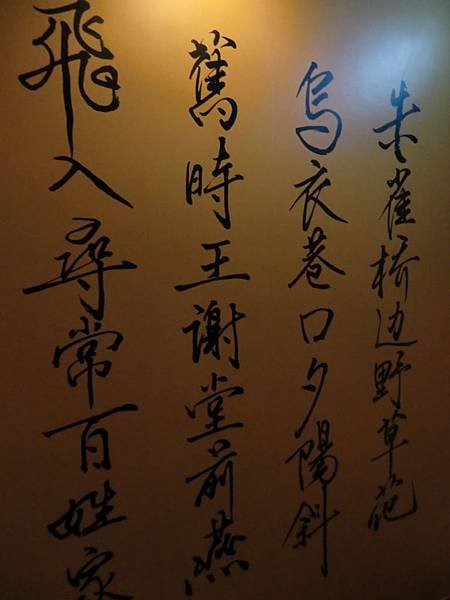 朱雀橋边野草花
烏衣巷口夕陽斜
舊時王謝堂前燕
飛入尋常百姓家